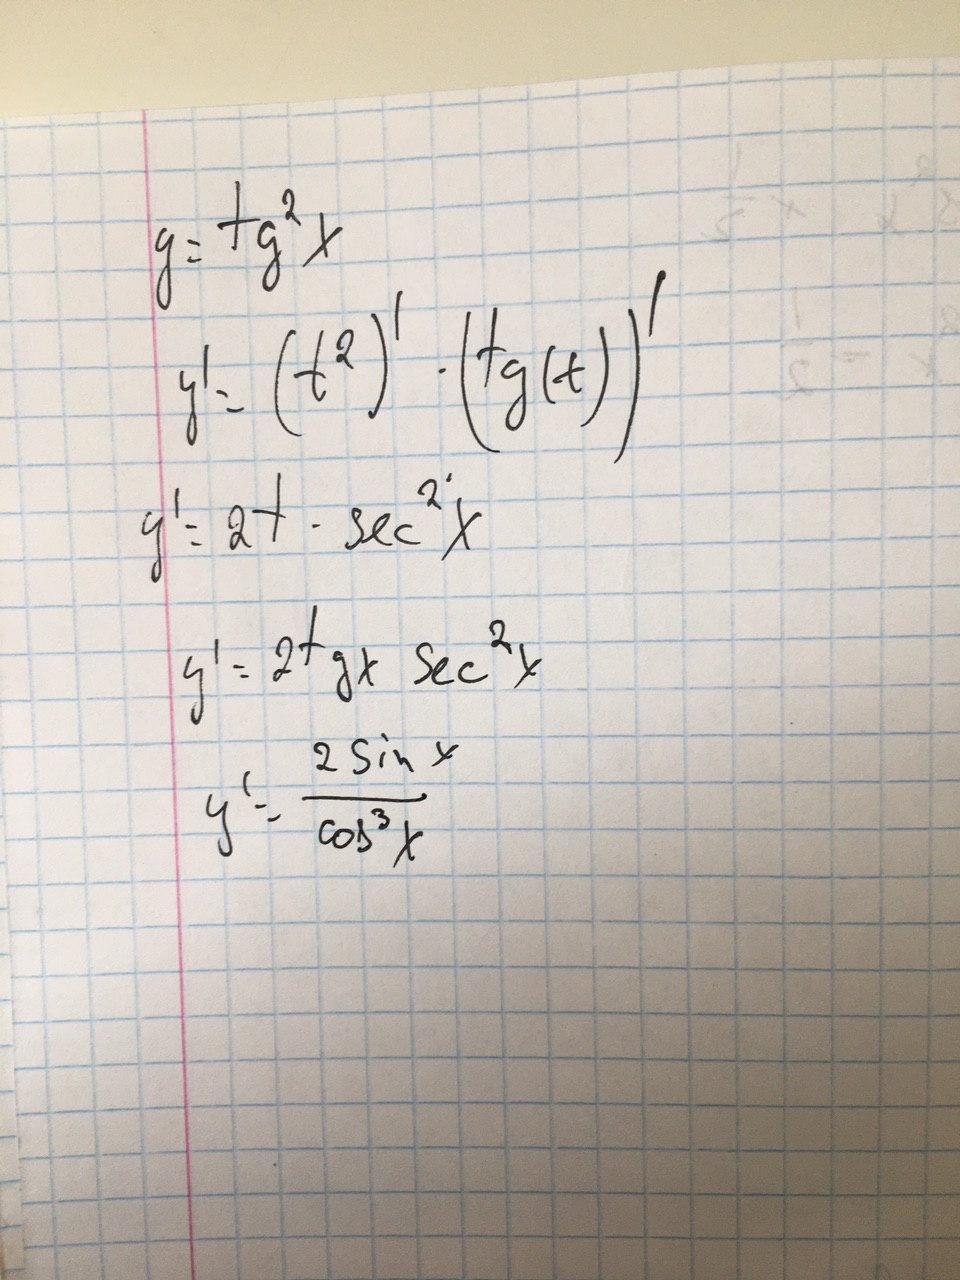 y = tg²x
y' = (t²)' · (tg(t))'
y' = 2t · sec²x
y' = 2tgx sec²x
y' = 2 sin x / cos³x